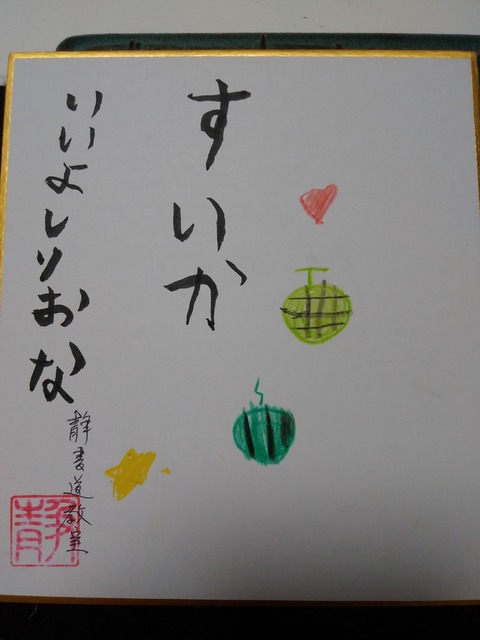 すいか
いいよしりおな
静書道教室
静